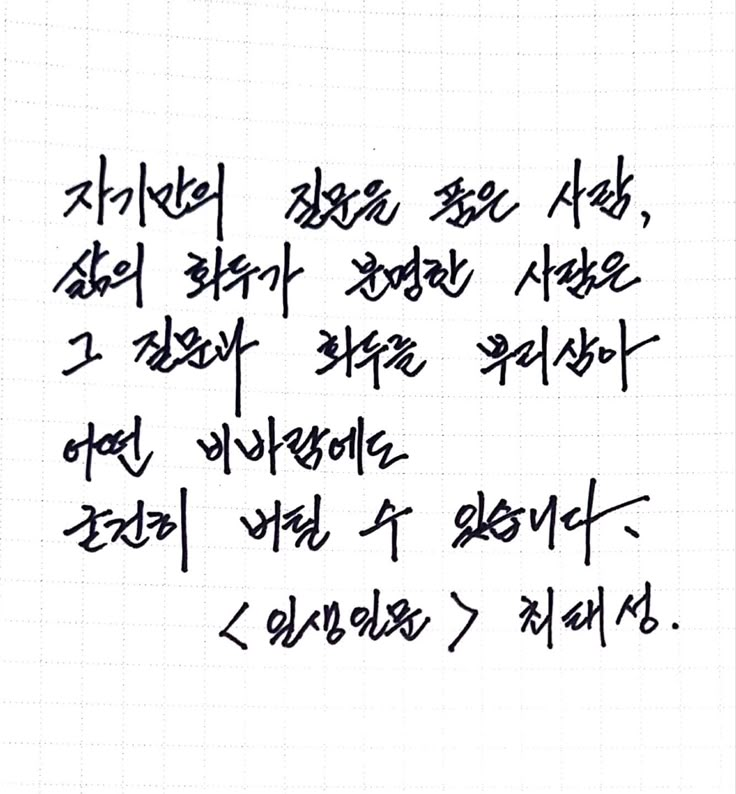 자기만의 질문을 품은 사람,
삶의 화두가 분명한 사람은
그 질문과 화두를 뿌리삼아
어떤 비바람에도
굳건히 버틸 수 있습니다.
<일생일문> 최태성.